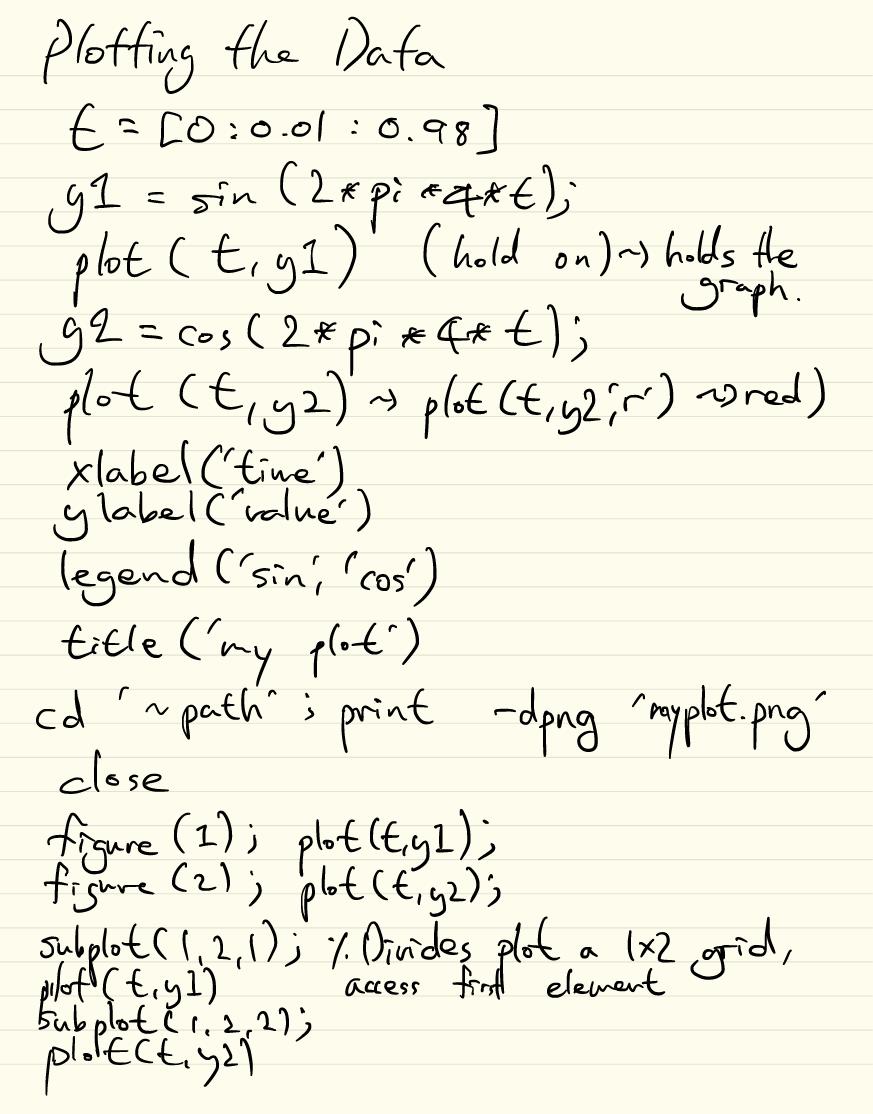 Plotting the Data
t = [0:0.01:0.98]
y1 = sin(2*pi*4*t);
plot(t,y1) (hold on) ~> holds the
graph.
y2 = cos(2*pi*4*t);
plot(t,y2) ~> plot(t,y2,'r') ~> red)
xlabel('time')
ylabel('value')
legend('sin','cos')
title('my plot')
cd '~path'; print -dpng 'myplot.png'
close
figure(1); plot(t,y1);
figure(2); plot(t,y2);
subplot(1,2,1); % Divides plot a 1x2 grid,
plot(t,y1) access first element
subplot(1,2,2);
plot(t,y2)